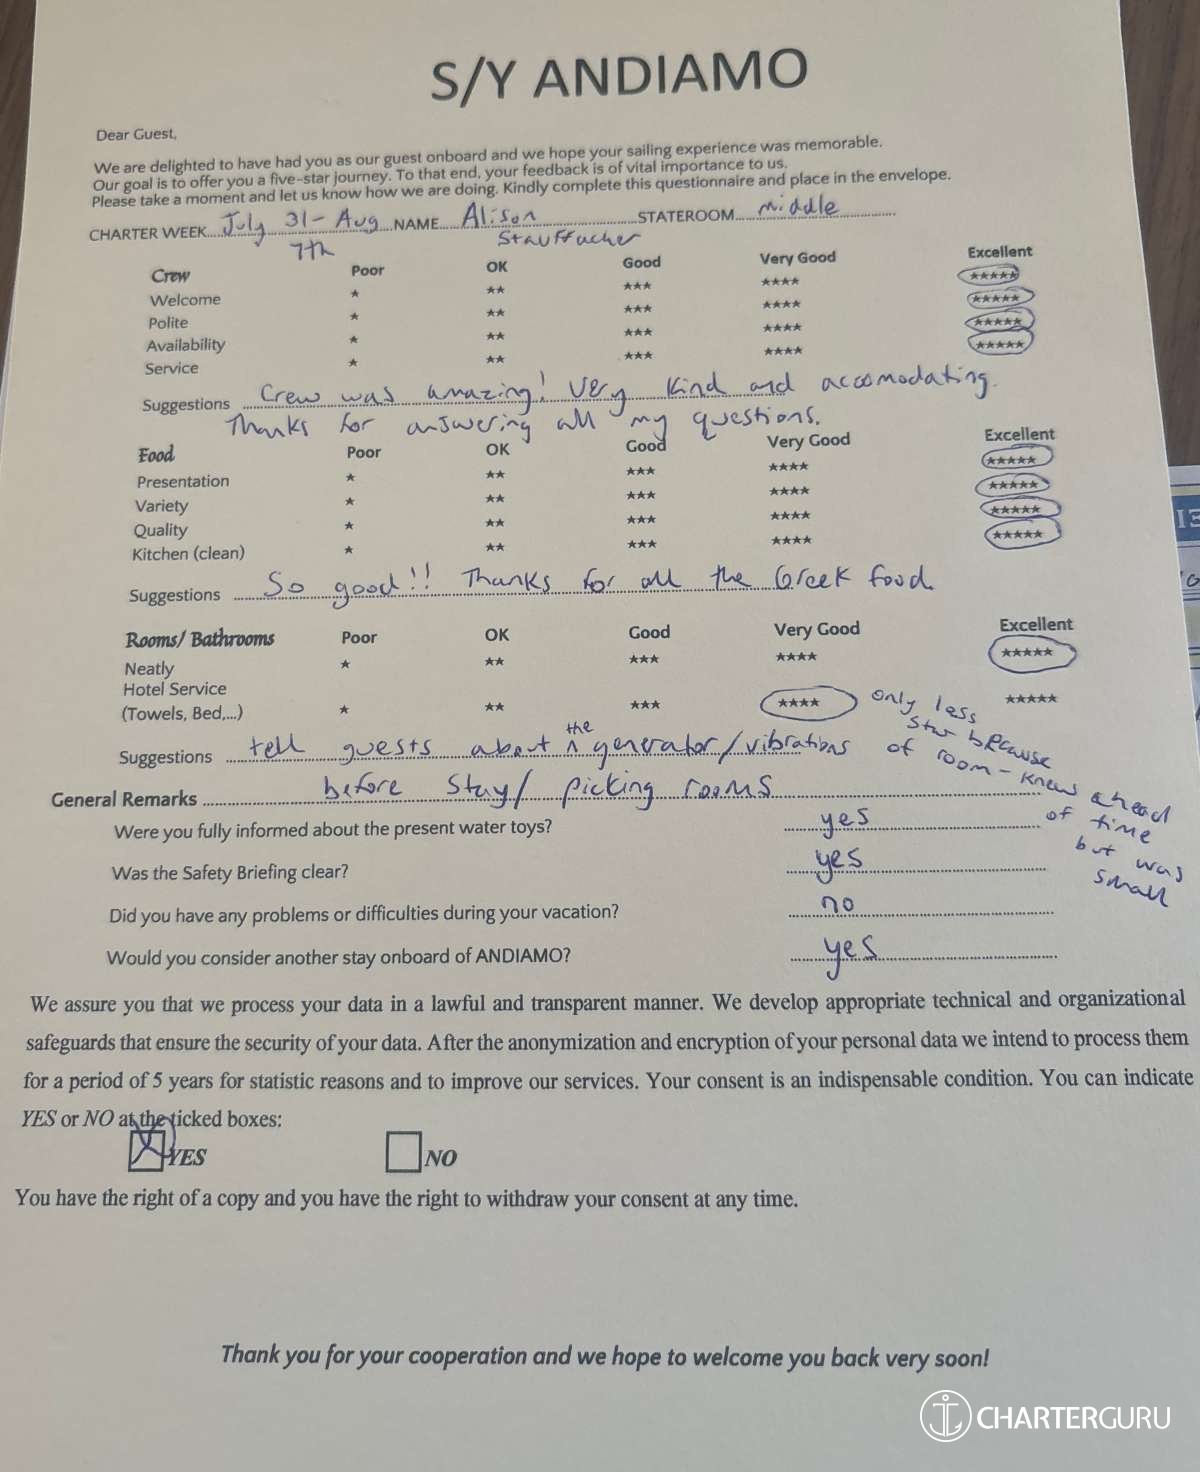 S/Y ANDIAMO
Dear Guest,
We are delighted to have had you as our guest onboard and we hope your sailing experience was memorable.
Our goal is to offer you a five-star journey. To that end, your feedback is of vital importance to us.
Please take a moment and let us know how we are doing. Kindly complete this questionnaire and place in the envelope.
CHARTER WEEK....July 31- Aug....NAME....Alison....STATEROOM....Middle....
7th Stauffacher
Crew Poor OK Good Very Good Excellent
Welcome * ** *** **** *****
Polite * ** *** **** *****
Availability * ** *** **** *****
Service * ** *** **** *****
Suggestions Crew was amazing! Very kind and accomodating.
Thanks for answering all my questions.
Food Poor OK Good Very Good Excellent
Presentation * ** *** **** *****
Variety * ** *** **** *****
Quality * ** *** **** *****
Kitchen (clean) * ** *** **** *****
Suggestions So good!! Thanks for all the Greek food
Rooms/ Bathrooms Poor OK Good Very Good Excellent
Neatly * ** *** **** *****
Hotel Service
(Towels, Bed,...) * ** *** **** *****
only less
star because
of room - knew ahead
of time
but was
small
Suggestions tell guests about ^ the generator/vibrations
General Remarks before stay/ picking rooms
Were you fully informed about the present water toys? yes
Was the Safety Briefing clear? yes
Did you have any problems or difficulties during your vacation? no
Would you consider another stay onboard of ANDIAMO? yes
We assure you that we process your data in a lawful and transparent manner. We develop appropriate technical and organizational
safeguards that ensure the security of your data. After the anonymization and encryption of your personal data we intend to process them
for a period of 5 years for statistic reasons and to improve our services. Your consent is an indispensable condition. You can indicate
YES or NO at the ticked boxes:
YES NO
You have the right of a copy and you have the right to withdraw your consent at any time.
Thank you for your cooperation and we hope to welcome you back very soon!
CHARTERGURU